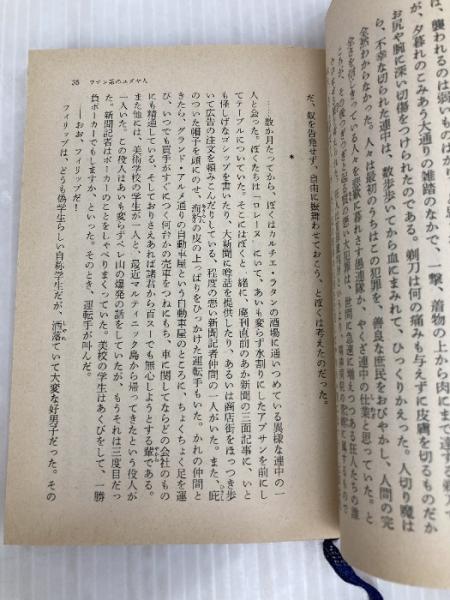 は、襲われるのは弱いものばかり
が、夕暮れのこみあう大通りの雑踏のなかで、一撃、着物の上から肉にまで達す
お尻や腕に深い切傷をつけられたのである。剃刀は何の痛みも与えずに皮膚を切るものだか
ら、不幸な切られた連中は、数歩歩いてから血にまみれて、ひっくりかえった。人切り魔は
全然わからなかった。人々は最初のうちはこの犯罪を、善良な庶民をおびやかし、人間の完
人々を悲歎に暮れさす愚連隊か、やくざ連中の仕業と思っていた。と
世間に急速に増えつつある狂人たちの誰
35 ラテン区のユダヤ人
だ、奴を告発せず、自由に振舞わせておこう、とぼくは考えたのだった。
*
……数か月たってから、ぼくはカルチエ・ラタンの酒場に通いつめている異様な連中の一
人と会った。ぼくたちは「ロレーヌ」にいて、あい も変らず水割りにしたアブサンを前にし
てテーブルについていた。そこにはぼくと一緒に、廃刊直前のあか新聞の三面記事に、いと
も怪しげなゴシップを書いたり、大新聞に噂話を提供したり、あるいは商店街をほっつき歩
いて広告の注文を頼みこんだりしている、程度の悪い新聞記者仲間の一人がいた。また、庇
のついた帽子を頭にのせ、海豹の皮の上っぱりをひっかけた運転手もいた。かれの仲間と
きたら、グランド・アルメ通りの自動車屋という自動車屋のところに、ちょくちょく足を運
び、いつでも買手がすぐにつく何台かの売車をつねにもち、車に関してならどの会社のもの
にも精通している、そしておりさえあれば諸君から百スーでも無心しようとする輩である。
また他には、美術学校の学生が一人と、最近マルティニック島から帰ってきたという役人が
一人いた。この役人はあいも変らずペレ山の爆発の話をしていたが、もうそれは三度目だっ
た。新聞記者はポーカーのことをしゃべりまくっていた。美校の学生はあくびをして、一勝
負ポーカーでもしますか、といった。そのとき、運転手が叫んだ。
――おお、フィリップだ!
フィリップは、どうも偽学生らしい自称学生だが、洒落ていて大変な好男子だった。その